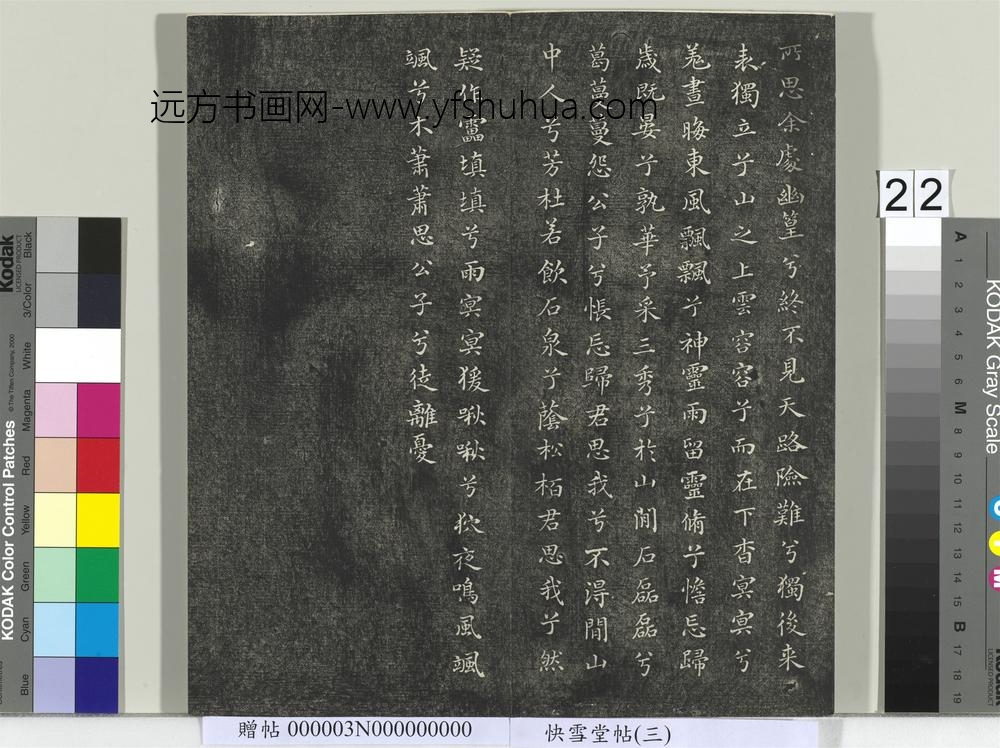 所思余處幽篁兮終不見天路險難兮獨後来
表獨立兮山之上雲容容兮而在下杳冥冥兮
羌晝晦東風飄飄兮神靈雨留靈脩兮憺忘歸
歲既晏兮孰華予采三秀兮於山間石磊磊兮
葛蔓蔓怨公子兮悵忘歸君思我兮不得閒山
中人兮芳杜若飲石泉兮蔭松栢君思我兮然
疑作靁填填兮雨冥冥猨啾啾兮狖夜鳴風颯
颯兮木蕭蕭思公子兮徒離憂
远方书画网-www.yfshuhua.com
22
贈帖 000003N000000000
快雪堂帖(三)
Kodak
LICENSED PRODUCT
KODAK Color Control Patches
© The Tiffen Company, 2000
Black
3/Color
White
Magenta
Red
Yellow
Green
Cyan
Blue
KODAK Gray Scale
A 1 2 3 4 5 6 M 8 9 10 11 12 13 14 15 B 17 18 19
C
Y
M
Kodak
LICENSED PRODUCT